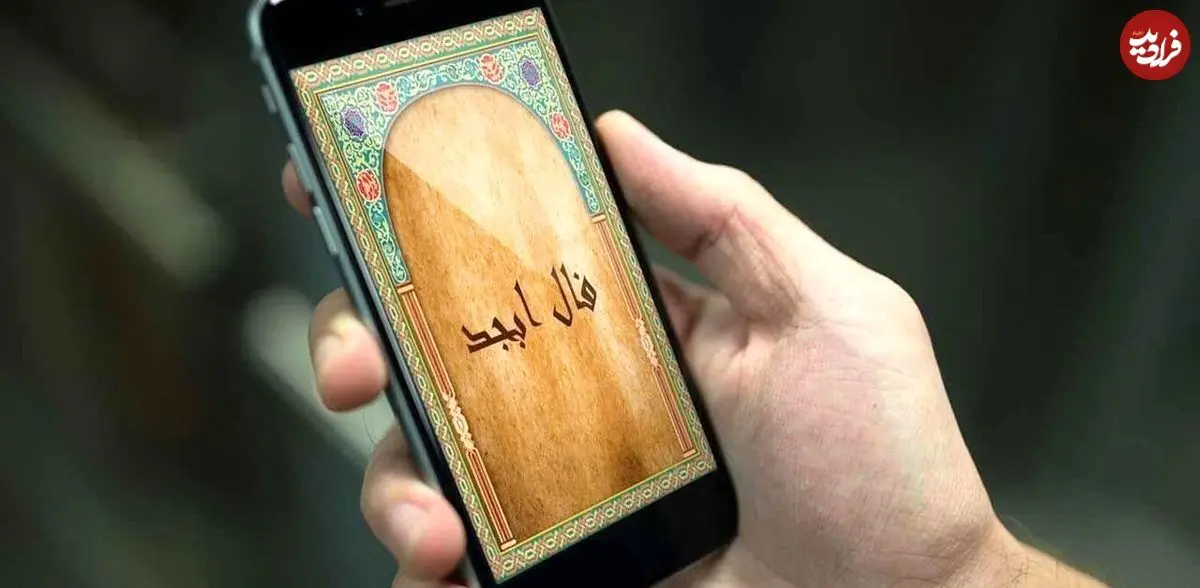 فال ابجد
فرادید